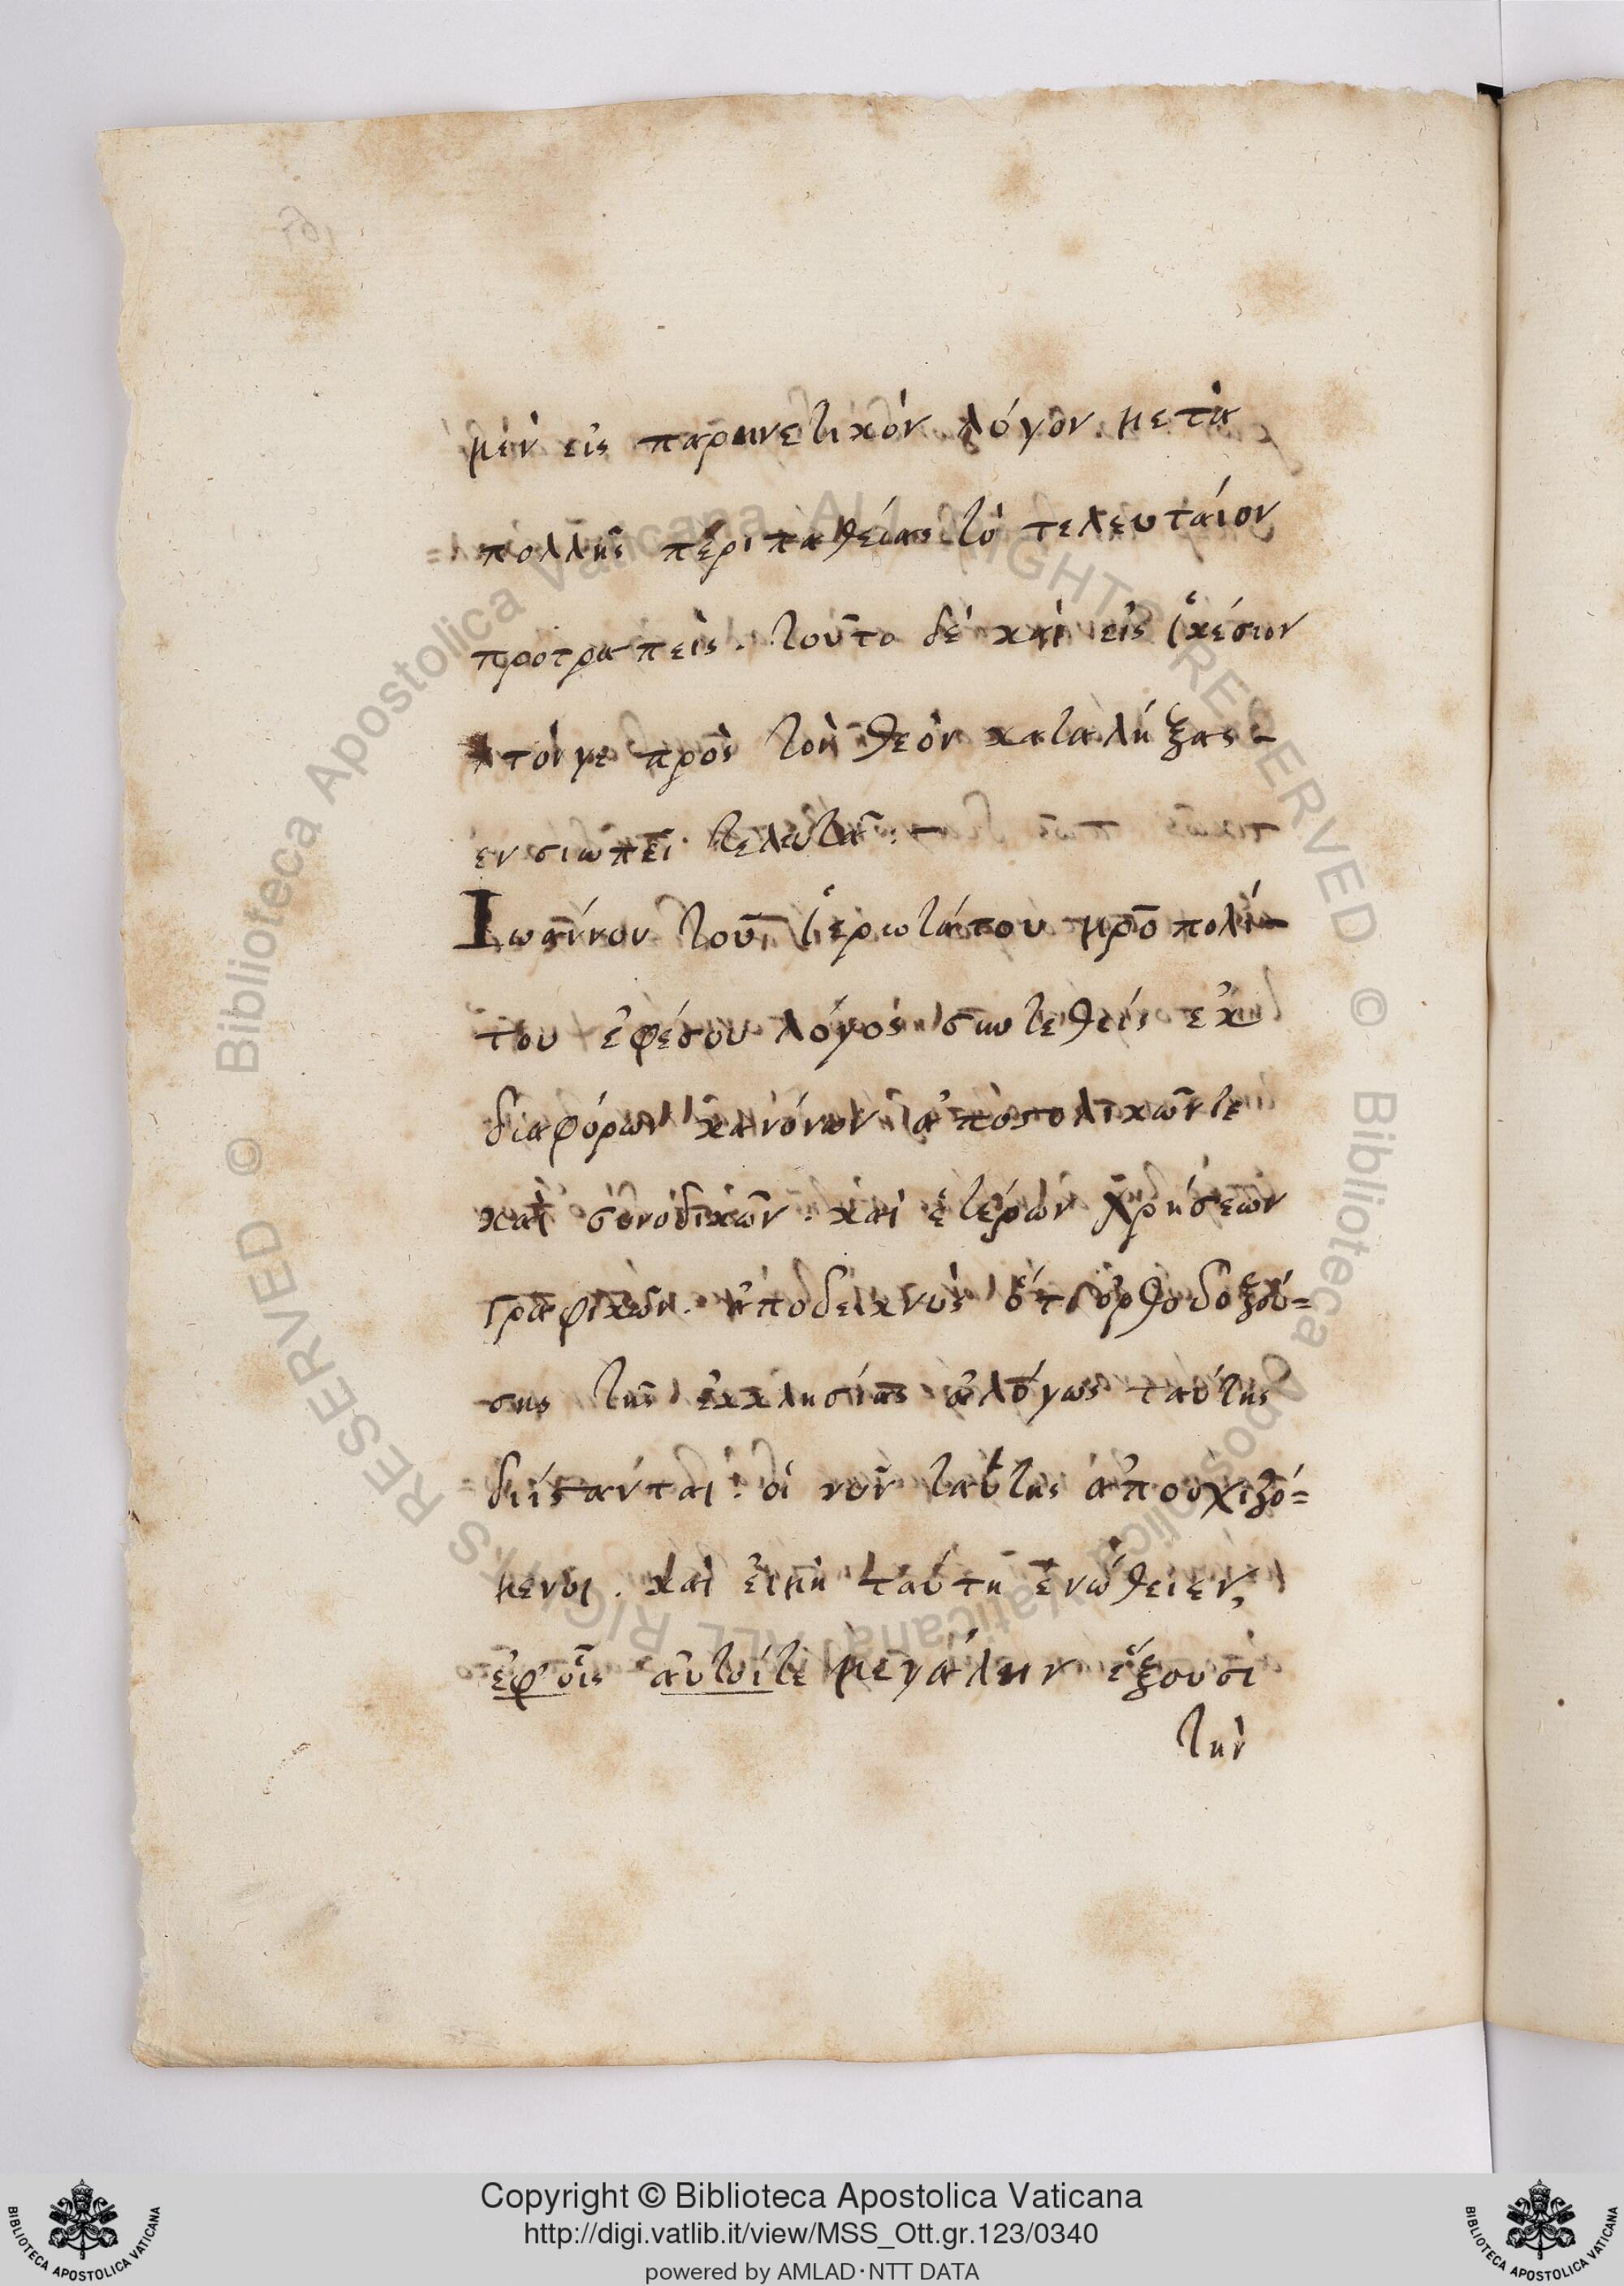 μὲν εἰς παραινετικὸν λόγον μετὰ
πολλῆς περιπαθείας τὸ τελευταίον
προτραπεὶς. τοῦτο δὲ καὶ εἰς ἱκέσιον
τόνγε πρὸς τὸν θεὸν καταλήξας -
ἐν σιωπεῖ τελευτᾶ :-
Ἰωάννου τοῦ ἱερωτάτου μρο πολί-
του ἐφέσου λόγος συντεθεὶς ἐκ
διαφόρων κανόνων ἀποστολικῶν τε
καὶ συνοδικῶν. καὶ ἑτέρων χρήσεων
γραφικῶν. ἀποδεικνυς ὅτι ὀρθοδοξού=
σης τῆς ἐκκλησίας ἀλόγως ταύτης
διίστανται. οἱ νῦν ταύτης ἀποσχιζό=
μενοι. καὶ εἰμὴ ταύτη ἑνωθειεν,
ἐφ' οἷς αὐτοίτε μεγάλην ἕξουσι
τὴν
Copyright © Biblioteca Apostolica Vaticana
http://digi.vatlib.it/view/MSS_Ott.gr.123/0340
powered by AMLAD·NTT DATA
BIBLIOTECA APOSTOLICA VATICANA
BIBLIOTECA APOSTOLICA VATICANA
© Biblioteca Apostolica Vaticana ALL RIGHTS RESERVED
© Biblioteca Apostolica Vaticana ALL RIGHTS RESERVED